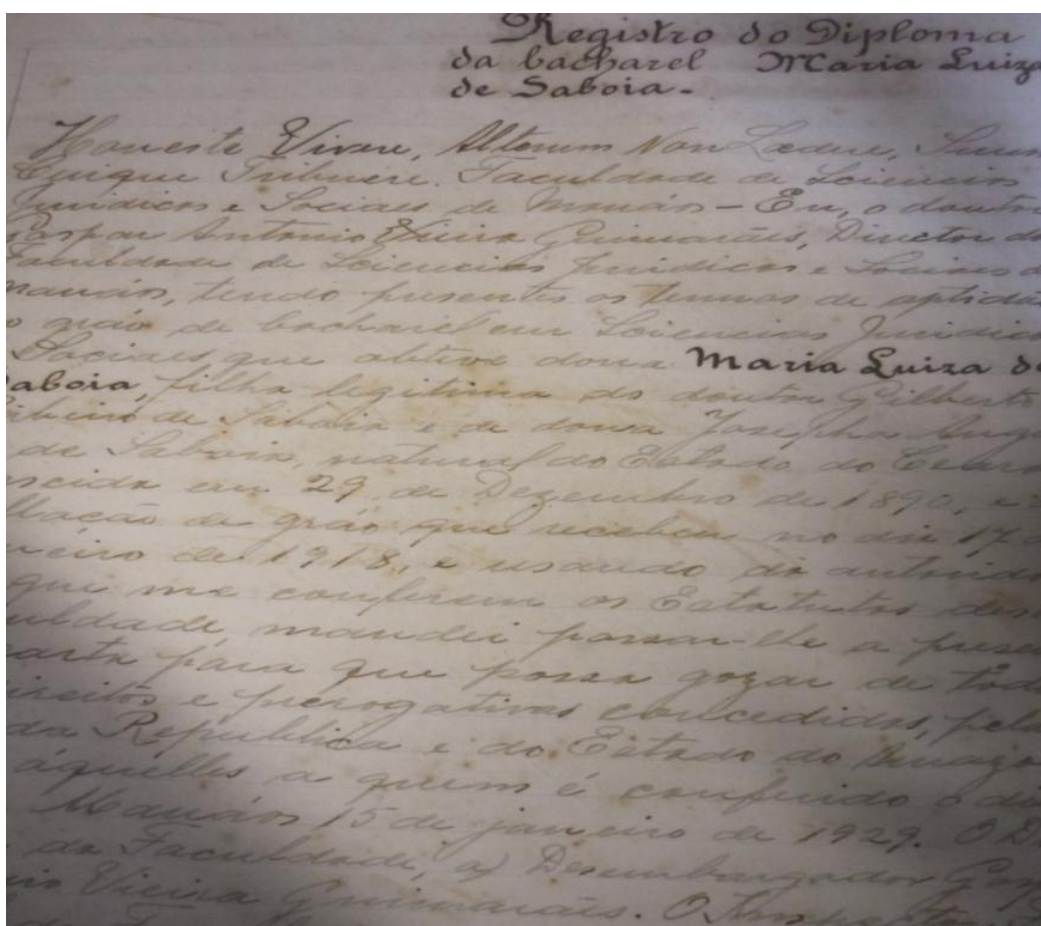 Registro do Diploma
da bacharel Maria Luiza
de Saboia.
Honeste Vivere, Alterum Non Laedere, Suum
Cuique Tribuere. Faculdade de Sciencias
Juridicas e Sociaes de Manáos - Eu, o doutor
Gaspar Antonio Vieira Guimarães, Director da
Faculdade de Sciencias Juridicas e Sociaes de
Manáos, tendo presentes os termos de aptidão
o gráo de bacharel em Sciencias Juridicas
Sociaes, que obteve dona Maria Luiza de
Saboia, filha legitima do doutor Gilberto
Ribeiro de Saboia e de dona Josepha
de Saboia, natural do Estado do Ceará
nascida em 29 de Dezembro de 1890, e
llação de gráo que recebeu no dia 17 d
neiro de 1918, e usando da autorida
que me conferem os Estatutos des
uldade, mandei passar-lhe a prese
carta para que possa gozar de tod
ireitos e prerogativas concedidas, pela
da Republica e do Estado do Amazo
áquelles a quem é conferido o di
Manáos 15 de janeiro de 1929. O Di
da Faculdade, a) Desembargador Gasp
nio Vieira Guimarães. O